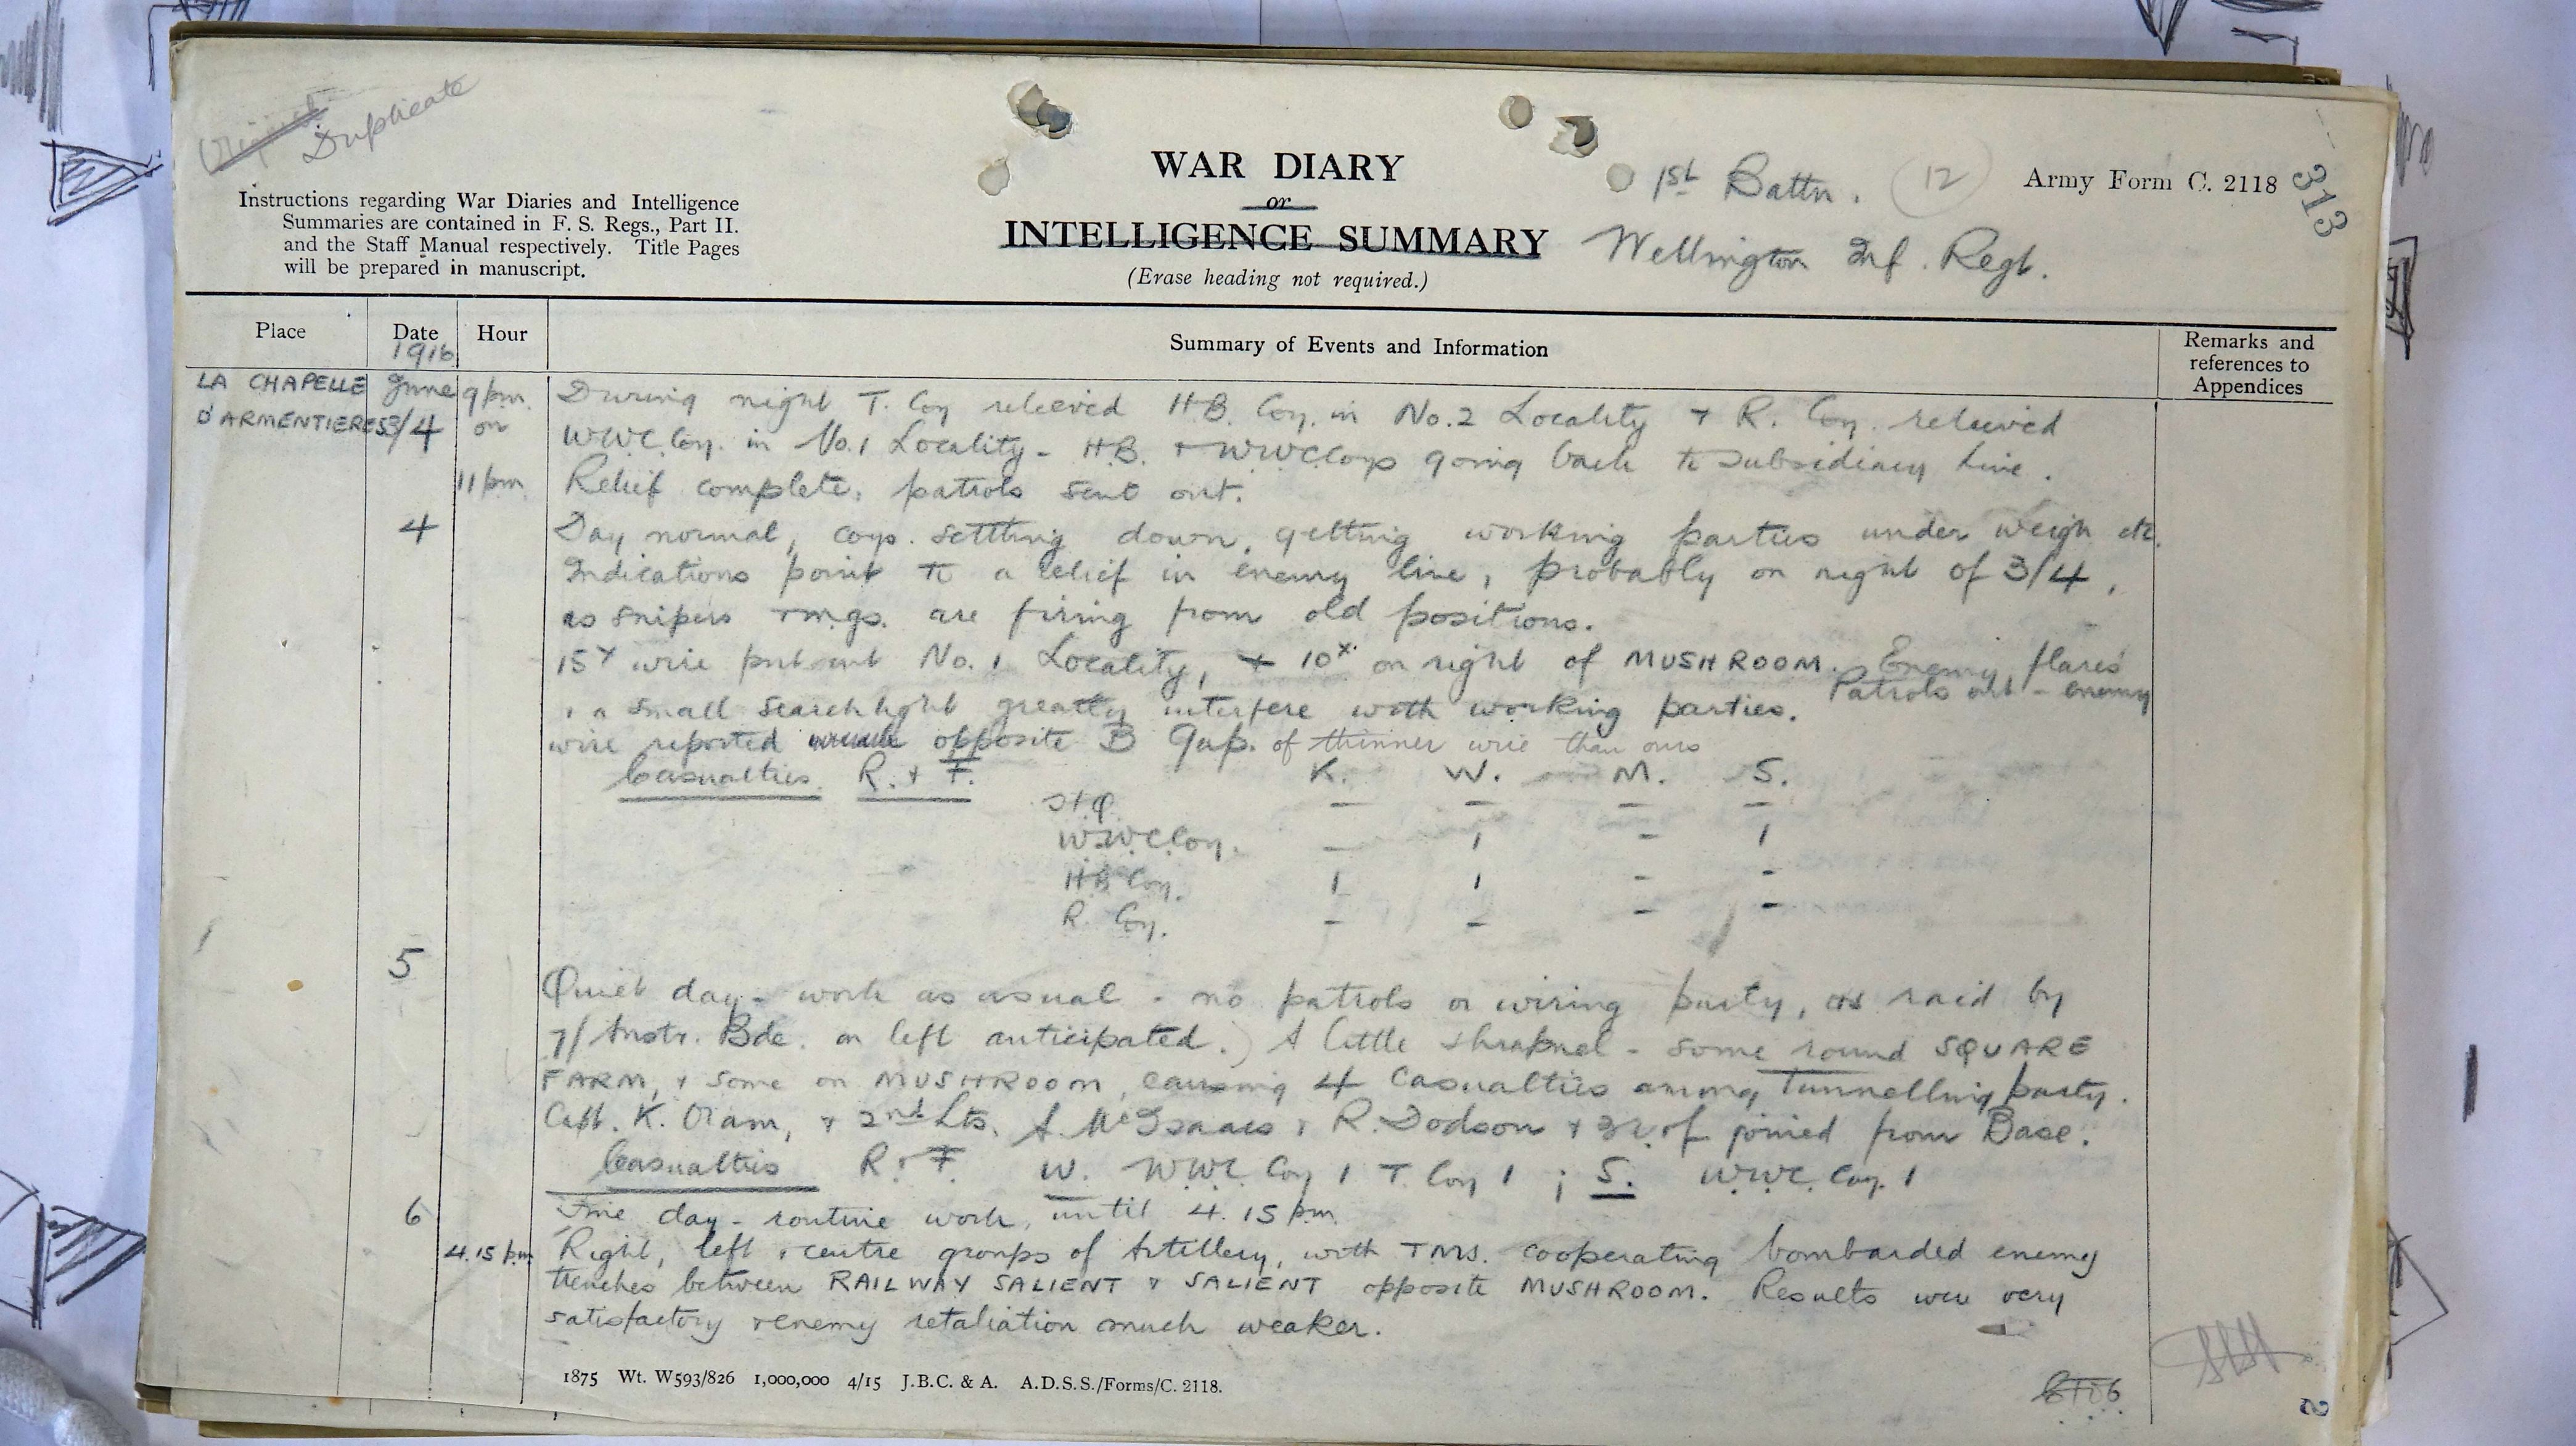 Duplicate
Instructions regarding War Diaries and Intelligence
Summaries are contained in F. S. Regs., Part II.
and the Staff Manual respectively. Title Pages
will be prepared in manuscript.
WAR DIARY
or
INTELLIGENCE SUMMARY
(Erase heading not required.)
1st Battn. 12
Wellington Inf. Regt.
Army Form C. 2118
313
Place Date Hour Summary of Events and Information Remarks and references to Appendices
1916
LA CHAPELLE June 9 pm. During night T. Coy relieved H.B. Coy. in No. 2 Locality + R. Coy. relieved
D'ARMENTIERES 3/4 on WWC Coy. in No. 1 Locality - H.B. + WWC Coys going back to Subsidiary Line.
11 pm Relief complete, patrols sent out.
4 Day normal, coys. settling down, getting working parties under weigh etc.
Indications point to a relief in enemy line, probably on night of 3/4,
as snipers + m.gs. are firing from old positions.
15x wire put out No. 1 Locality, + 10x on right of MUSHROOM. Enemy flares
+ a small searchlight greatly interfere with working parties. Patrols out - enemy
wire reported opposite B Gap. of thinner wire than ours
Casualties. R. + F. K. W. M. S.
H.Q. — — — —
W.W.C. Coy. — 1 - 1
H.B Coy. 1 1 - -
R. Coy. - - - -
5 Quiet day - work as usual - no patrols or wiring party, as raid by
7/Austr. Bde. on left anticipated.) A little shrapnel - some round SQUARE
FARM, + some on MUSHROOM, causing 4 casualties among Tunnelling party.
Capt. K. Oram, + 2nd Lts. A. McIsaacs, R. Dodson + of joined from Base.
Casualties R. + F. W. WWC Coy 1 T. Coy 1 ; S. W.W.C. Coy. 1
6 Fine day - routine work, until 4.15 pm.
4.15 pm Right, left + centre groups of Artillery, with TMS. cooperating bombarded enemy
trenches between RAILWAY SALIENT + SALIENT opposite MUSHROOM. Results were very
satisfactory + enemy retaliation much weaker.
1875 Wt. W593/826 1,000,000 4/15 J.B.C. & A. A.D.S.S./Forms/C. 2118.